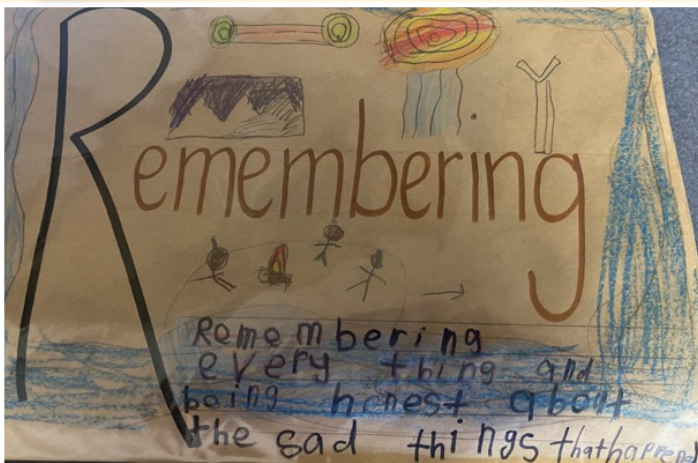 Remembering
Remembering
every thing and
being honest about
the sad things thathappened